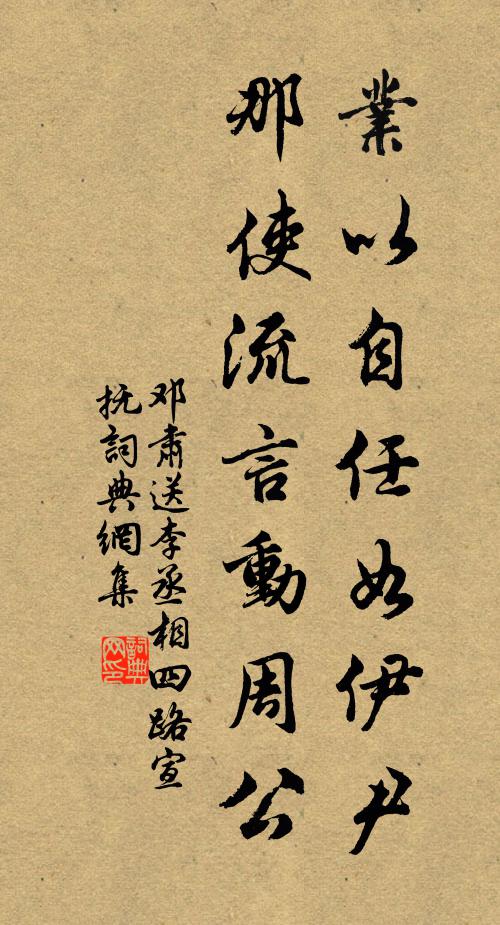 業以自任如伊尹
那使流言動周公
邓肅送李丞相四路宣
抚詞典網集
詞典
网印